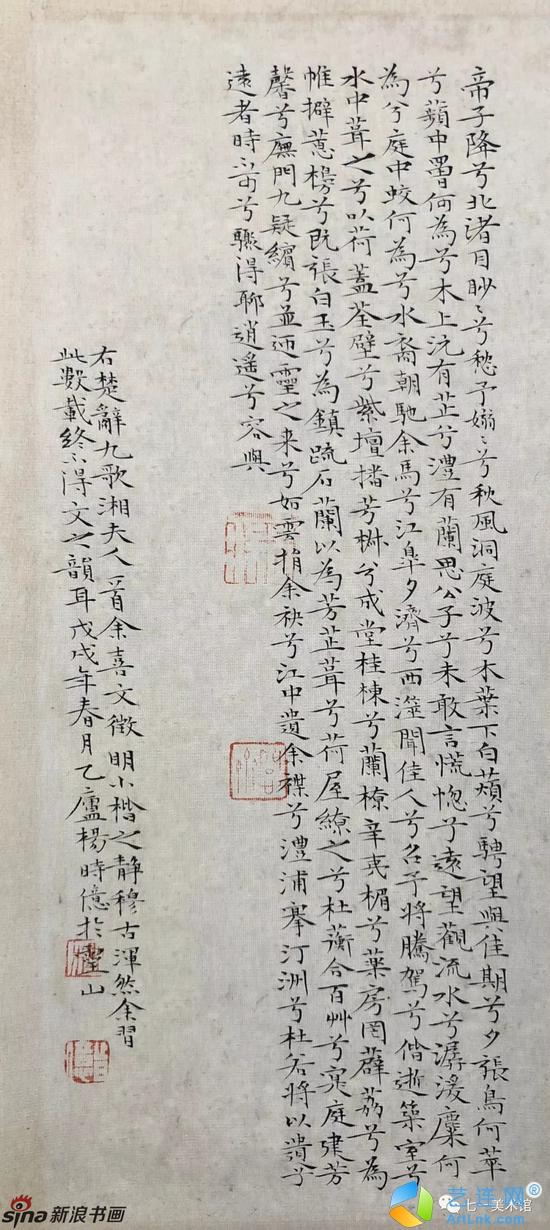 帝子降兮北渚目眇〻兮愁予嫋〻兮秋風洞庭波兮木葉下白薠兮騁望與佳期兮夕張鳥何萃
兮蘋中罾何為兮木上沅有芷兮澧有蘭思公子兮未敢言慌惚兮遠望觀流水兮潺湲麋何
為兮庭中蛟何為兮水裔朝馳余馬兮江皋夕濟兮西澨聞佳人兮召予將騰駕兮偕逝築室兮
水中葺之兮以荷蓋荃壁兮紫壇播芳椒兮成堂桂棟兮蘭橑辛夷楣兮葯房罔薜荔兮為
帷擗蕙櫋兮既張白玉兮為鎮疏石蘭以為芳芷葺兮荷屋繚之兮杜蘅合百艸兮實庭建芳
馨兮廡門九疑繽兮並迎靈之来兮如雲捐余袂兮江中遺余褋兮澧浦搴汀洲兮杜若將以遺兮
遠者時不可兮驟得聊逍遥兮容與
右楚辭九歌湘夫人一首余喜文徵明小楷之静穆古渾然余習
此數載終不得文之韻耳戊戌年春月乙廬楊時億於靈山
sina新浪书画
七一美术馆
艺连网
ArtLnk.com